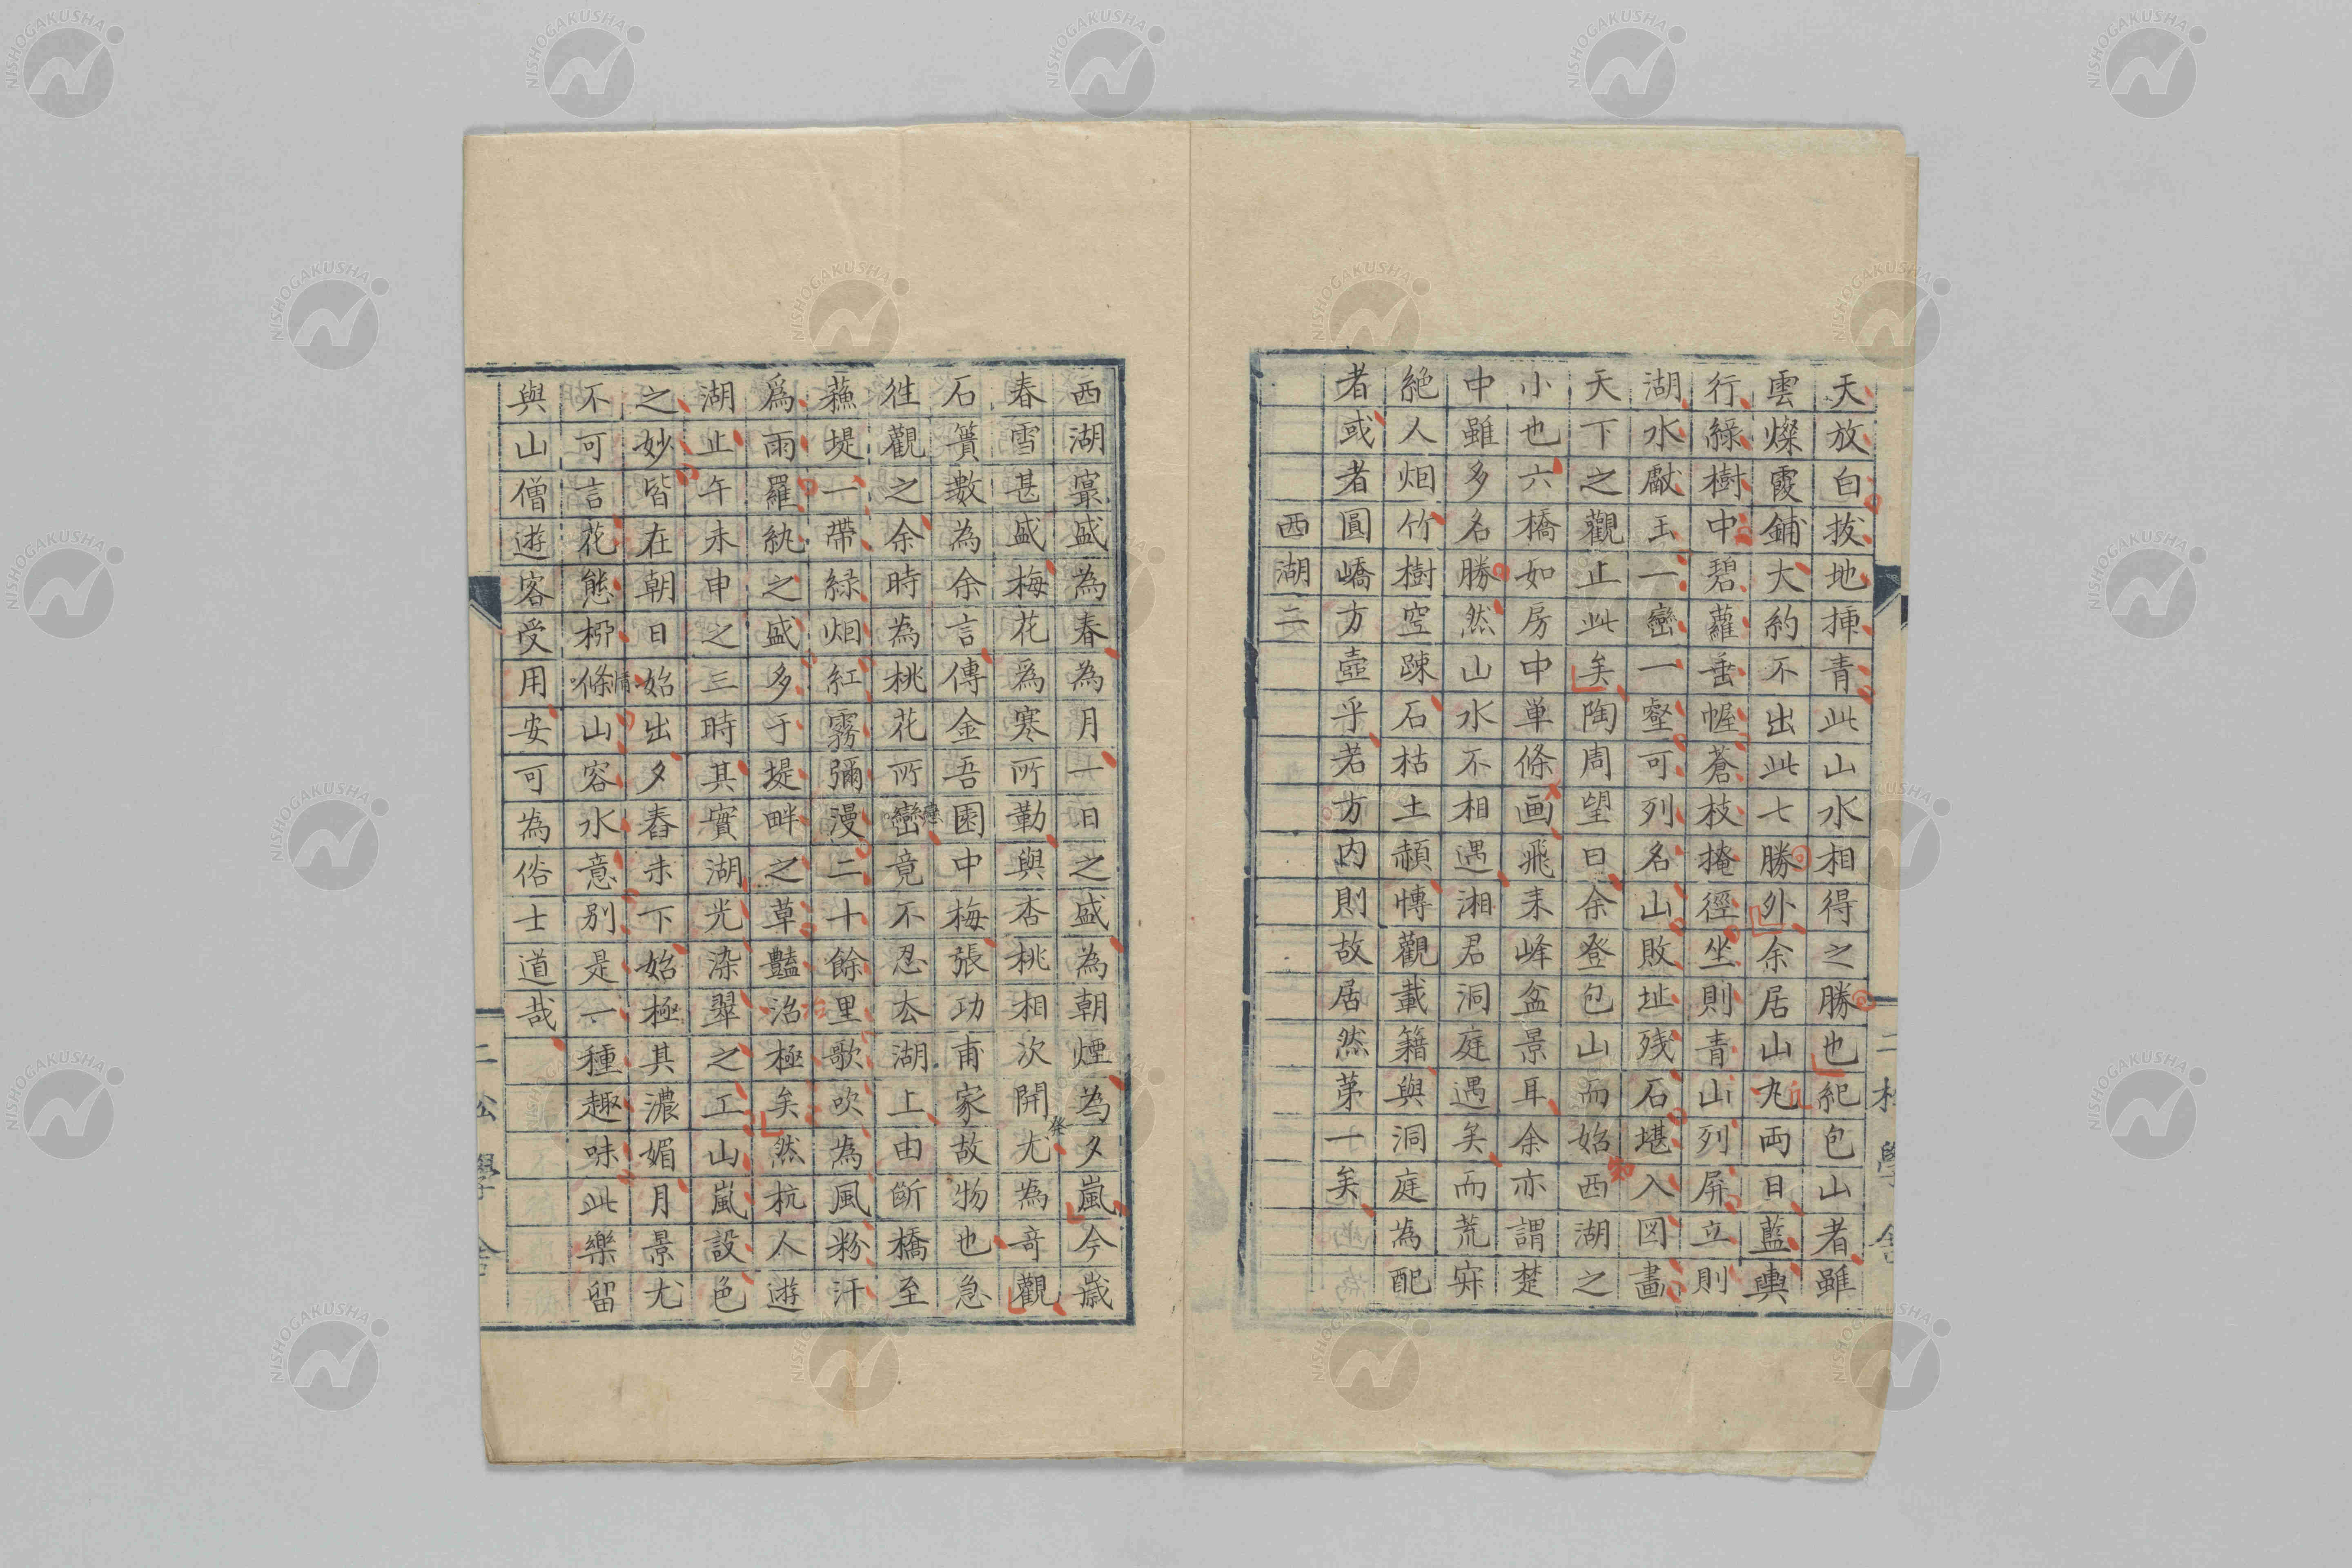 天放白抜地挿青此山水相得之勝也紀包山者雖
雲燦霞鋪大約不出此七勝外余居山九両日藍輿
行緑樹中碧蘿垂幄蒼枝掩徑坐則青山列屏立則
湖水獻玉一巒一壑可列名山敗址残石堪入図畫
天下之觀止此矣陶周望曰余登包山而始西湖之
知
小也六橋如房中単條画飛来峰盆景耳余亦謂楚
中雖多名勝然山水不相遇湘君洞庭遇矣而荒寂
絶人畑竹樹空踈石枯土頳慱觀載籍與洞庭為配
者或者圓嶠方壺乎若方内則故居然苐一矣
西湖二
西湖冣盛為春為月一日之盛為朝煙為夕嵐今歳
春雪甚盛梅花爲寒所勒與杏桃相次開尤為竒觀
石簣數為余言傳金吾園中梅張功甫家故物也急
徃觀之余時為桃花所巒竟不忍去湖上由斷橋至
戀
蘓堤一帶緑畑紅霧彌漫二十餘里歌吹為風粉汗
爲雨羅紈之盛多于堤畔之草豔治極矣然杭人遊
冶
湖止午未申之三時其實湖光染翠之工山嵐設色
之妙皆在朝日始出夕舂未下始極其濃媚月景尤
不可言花態栁條山容水意別是一種趣味此樂留
情
與山僧遊客受用安可為俗士道哉
二松學舎
NISHOGAKUSHA